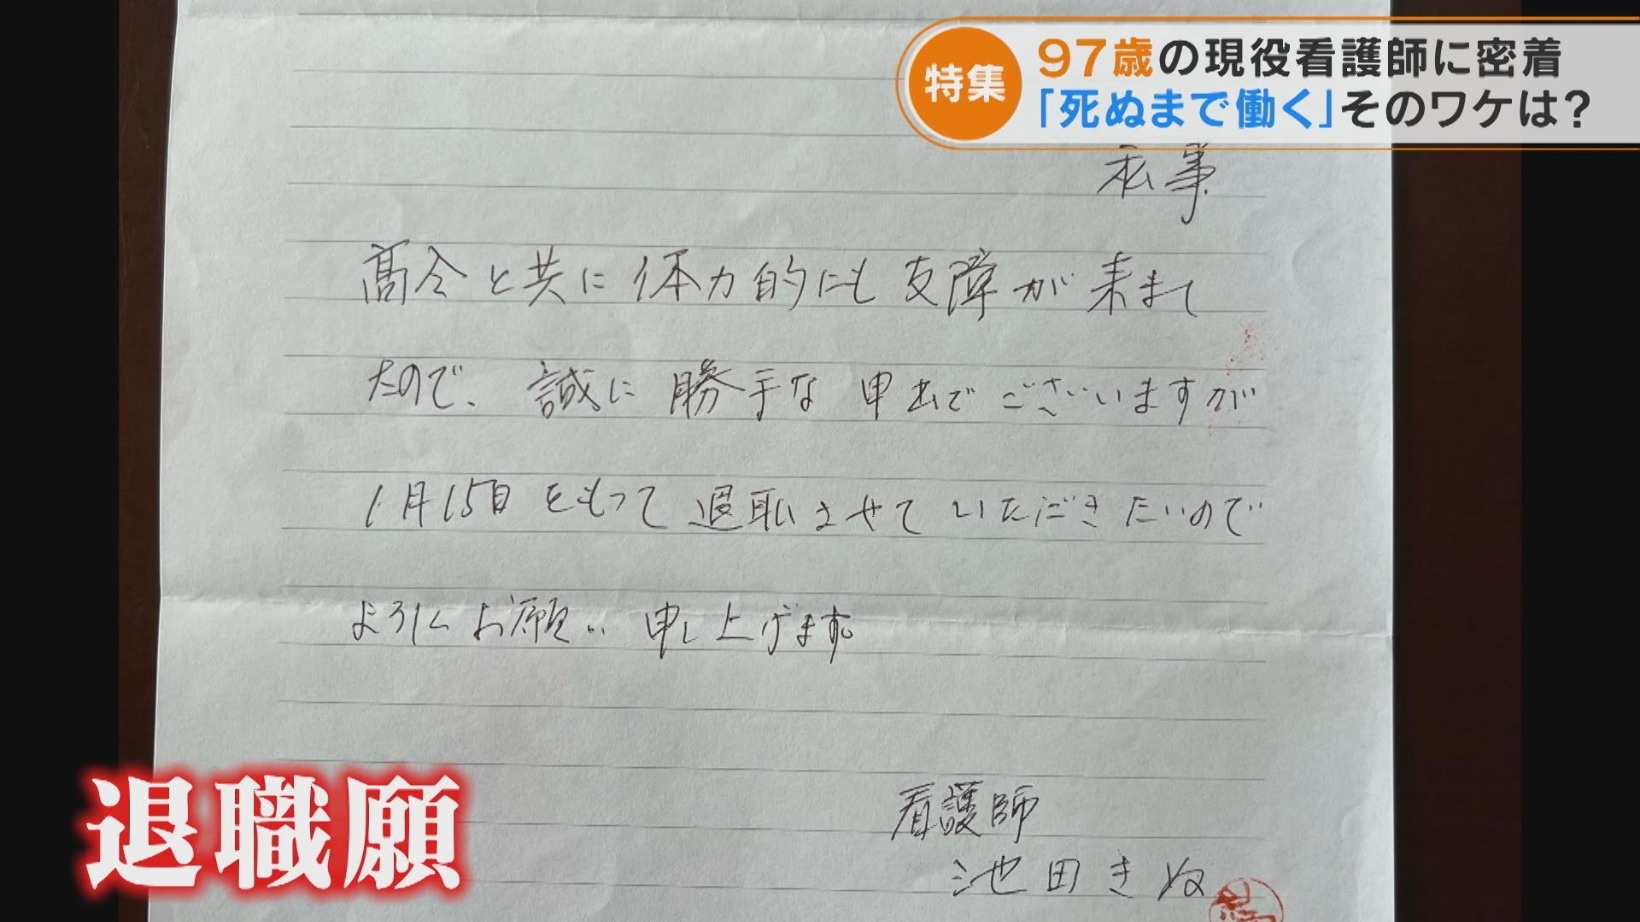 特集
97歳の現役看護師に密着
「死ぬまで働く」そのワケは?
私事
高令と共に体力的にも支障が来まし
たので、誠に勝手な申出でございますが
1月15日をもって退耺させていただきたいので
よろしくお願い申し上げます。
看護師
池田きぬ
退職願